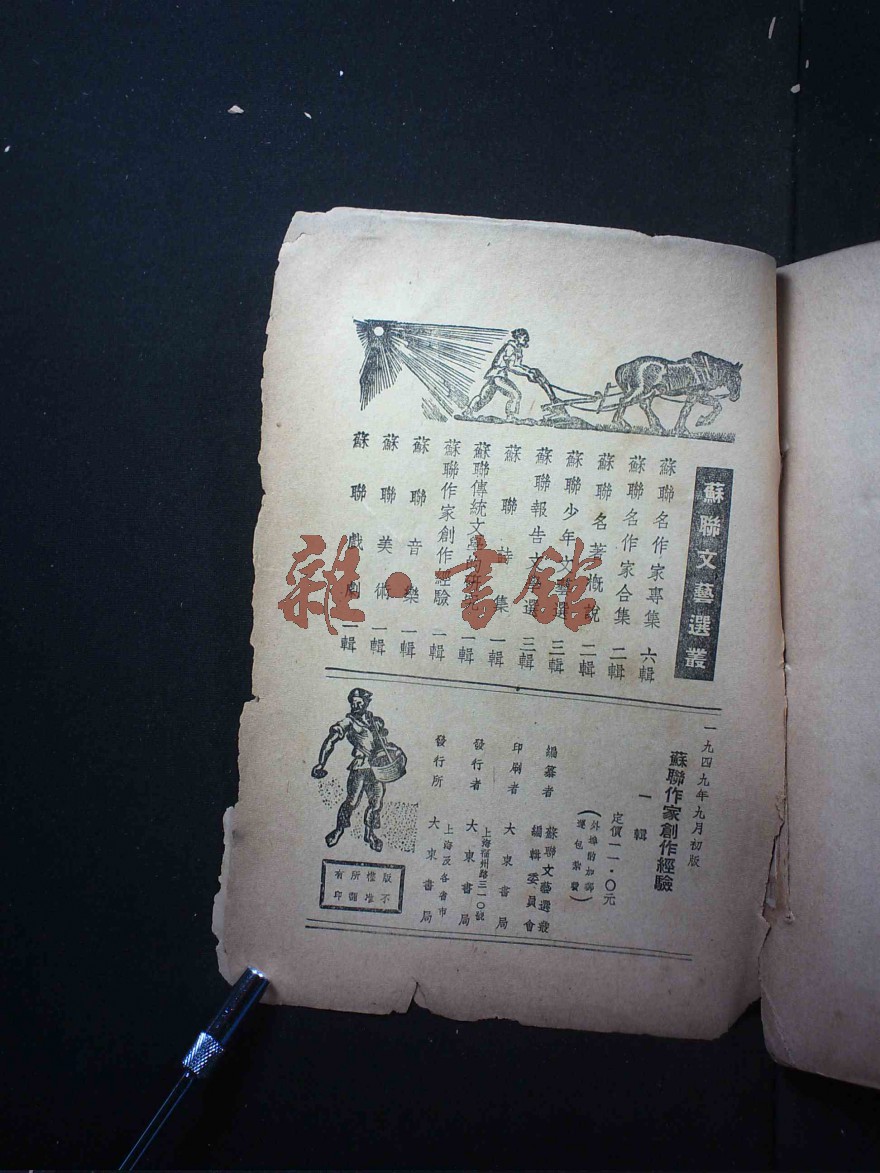 蘇聯文藝選叢
蘇聯名作家專集 六輯
蘇聯名作家合集 二輯
蘇聯名著概說 二輯
蘇聯少年文藝選 三輯
蘇聯報告文學選 三輯
蘇聯詩集 一輯
蘇聯傳統文學的研究 一輯
蘇聯作家創作經驗 一輯
蘇聯音樂 一輯
蘇聯美術 一輯
蘇聯戲劇 一輯
一九四九年九月初版
蘇聯作家創作經驗
一輯
定價一一·〇元
(外埠酌加郵運包紮費)
編纂者 蘇聯文藝選叢編輯委員會
印刷者 大東書局
發行者 上海福州路三一〇號 大東書局
發行所 上海及各省市 大東書局
版權所有
不准翻印
雜·書館